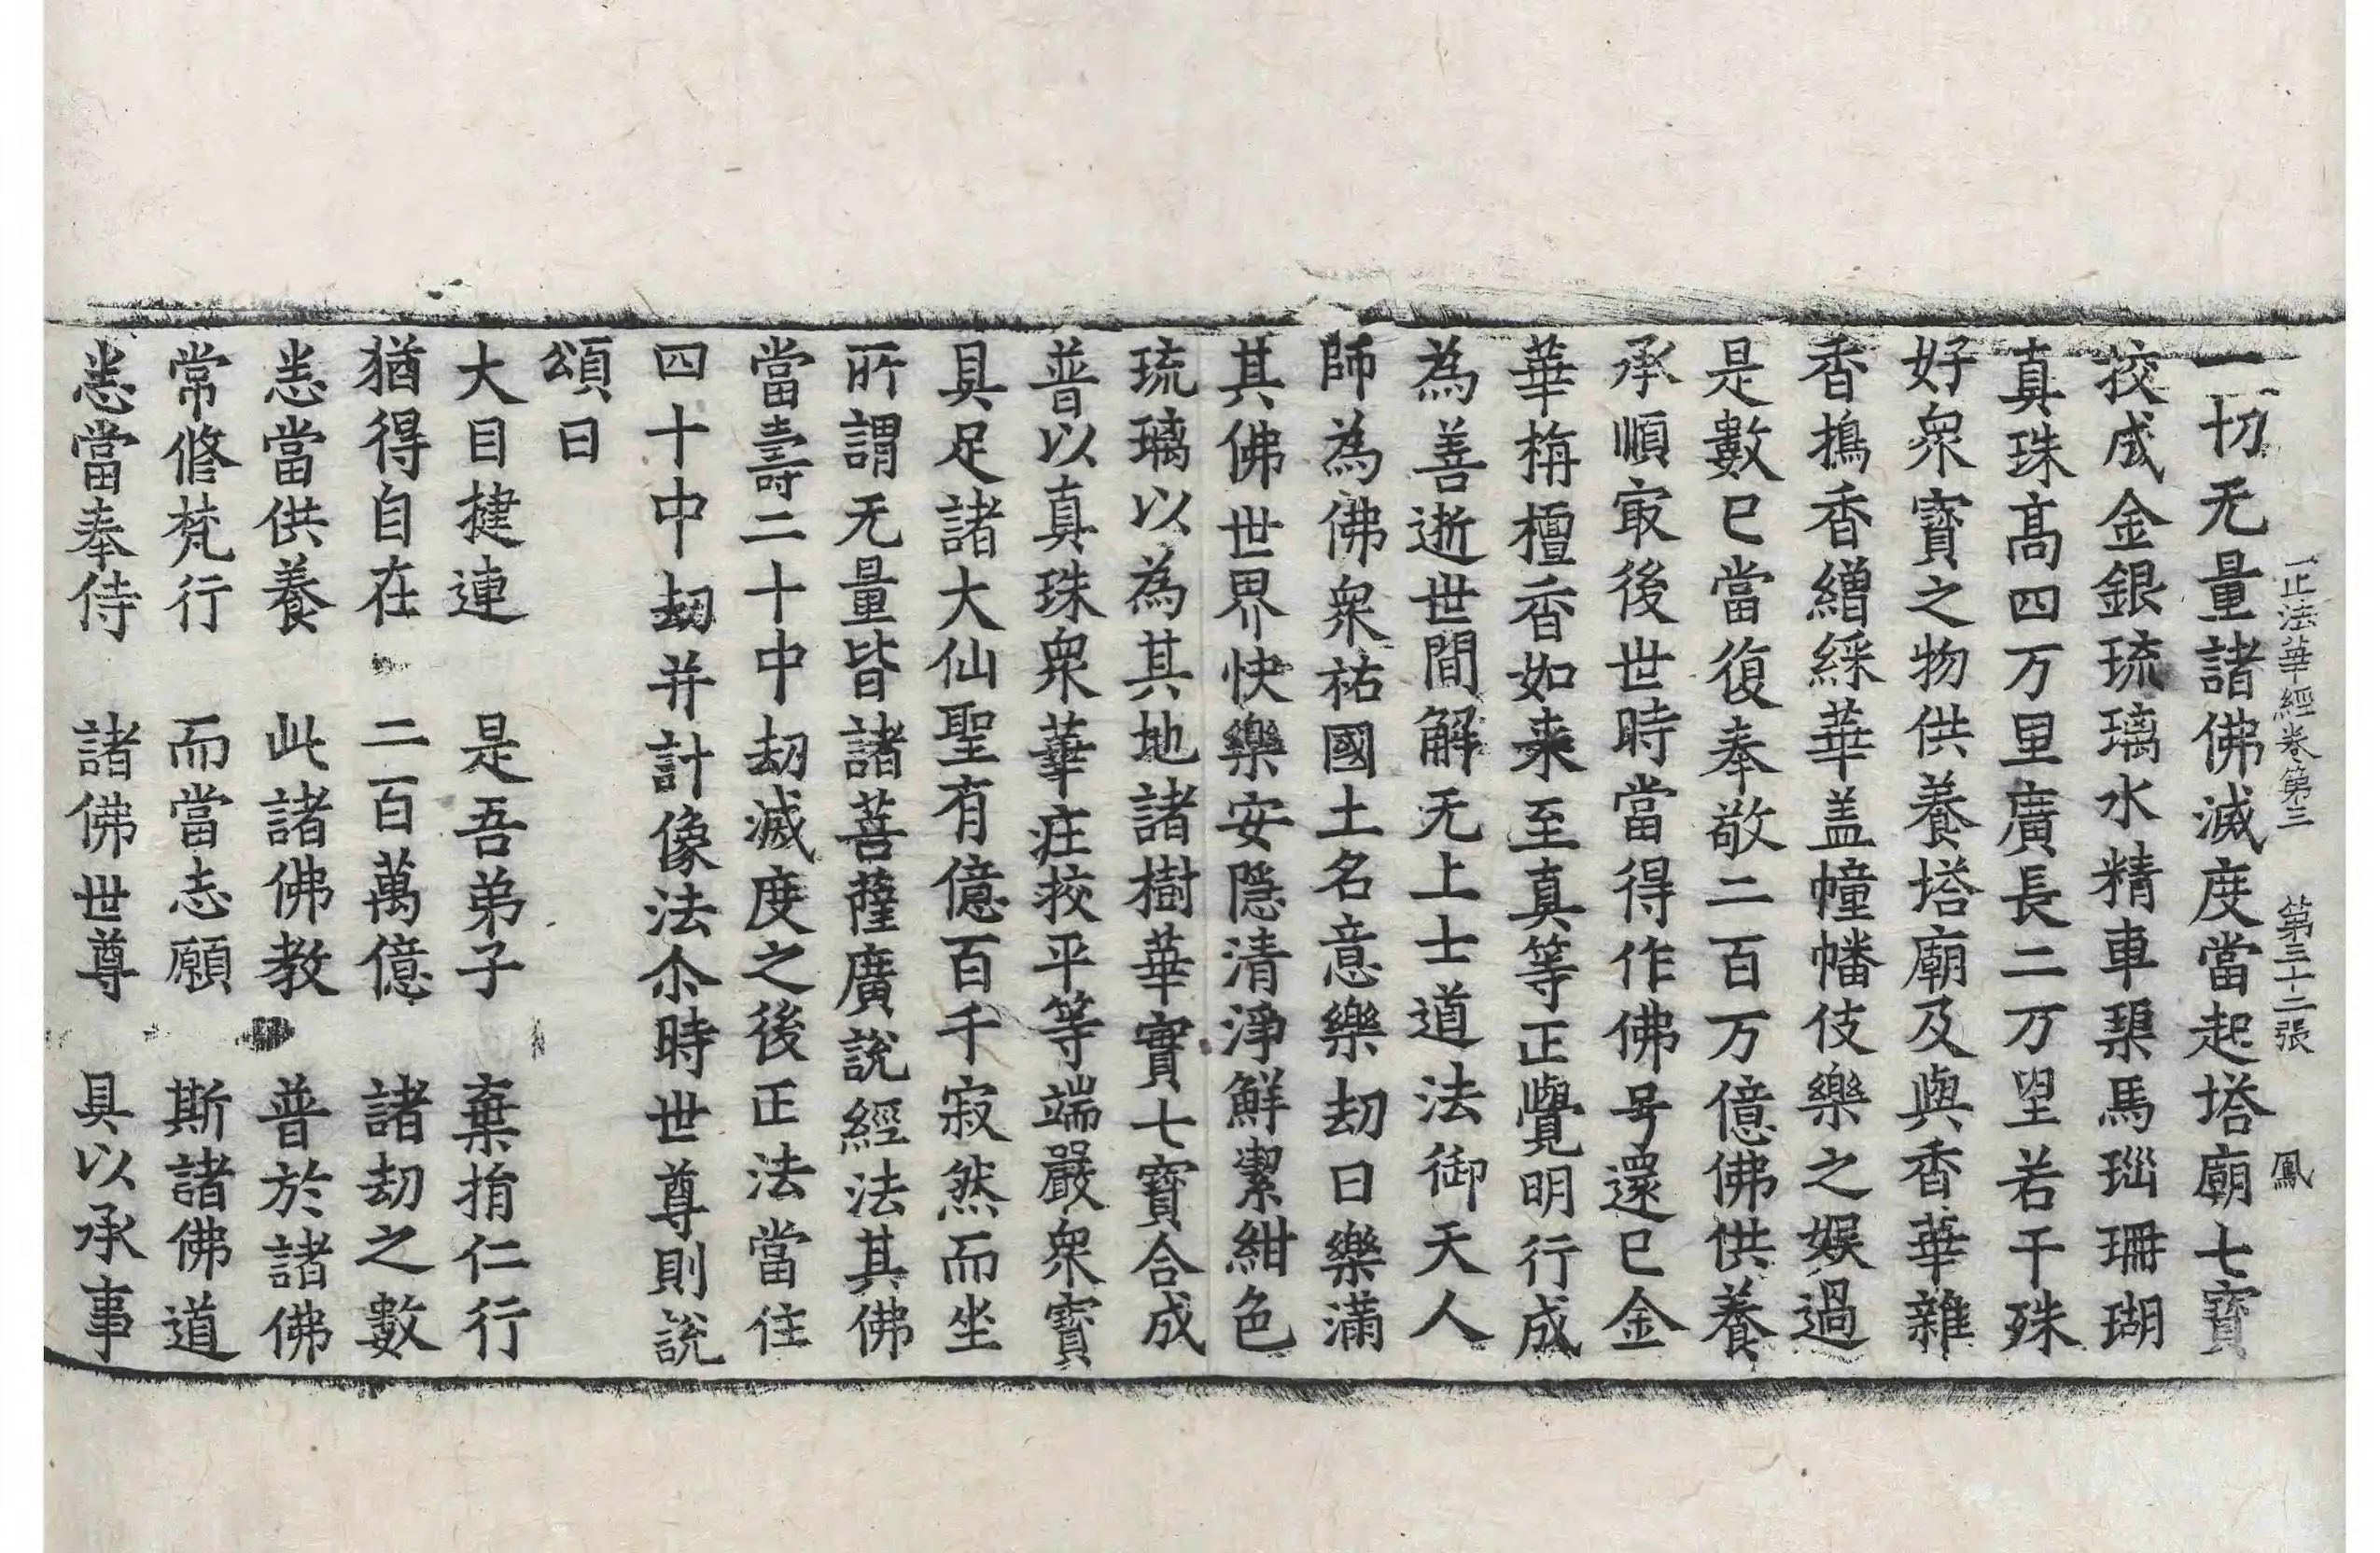 正法華經卷第三　第三十二張　鳳
一切无量諸佛滅度當起塔廟七寶
挍成金銀琉璃水精車𤦲馬瑙珊瑚
真珠髙四万里廣長二万里若干殊
好衆寶之物供養塔廟及與香華雜
香擣香繒綵華盖幢幡伎樂之娱過
是數已當復奉敬二百万億佛供養
承順㝡後世時當得作佛号還已金
華栴檀香如来至真等正覺明行成
為善逝世間解无上士道法御天人
師為佛衆祐國土名意樂劫曰樂滿
其佛世界快樂安隱清淨鮮潔紺色
琉璃以為其地諸樹華實七寶合成
普以真珠衆華庄挍平等端嚴衆寶
具足諸大仙聖有億百千寂然而坐
所謂无量皆諸菩薩廣說經法其佛
當壽二十中劫滅度之後正法當住
四十中劫并計像法尒時世尊則說
頌曰
大目揵連　是吾弟子　棄捐仁行
猶得自在　二百萬億　諸劫之數
悉當供養　此諸佛教　普於諸佛
常修梵行　而當志願　斯諸佛道
悉當奉侍　諸佛世尊　具以承事